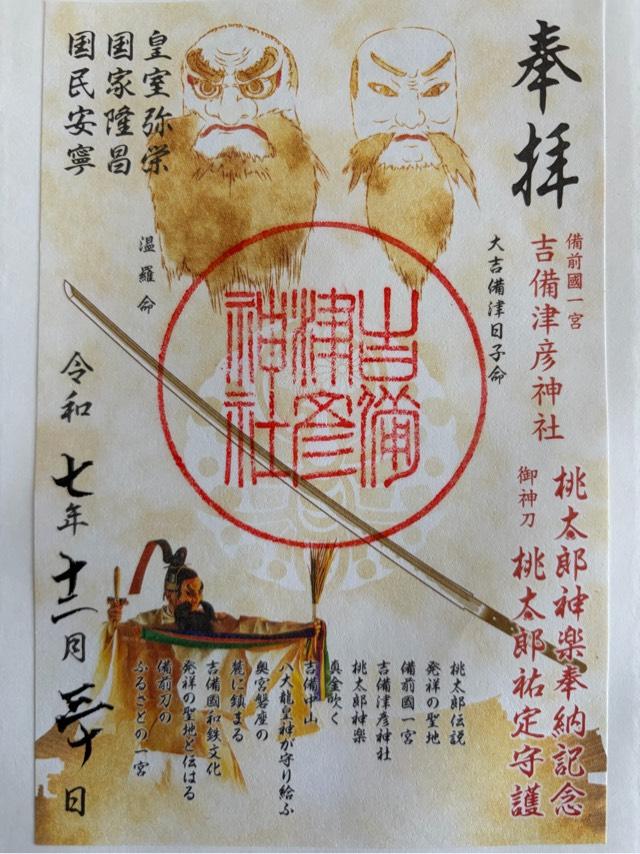 奉拝
備前國一宮
吉備津彦神社
桃太郎神楽奉納記念
御神刀 桃太郎祐定守護
大吉備津日子命
吉備津彦神社
温羅命
皇室弥栄
国家隆昌
国民安寧
桃太郎伝説
発祥の聖地
備前國一宮
吉備津彦神社
桃太郎神楽
真金吹く
吉備中山
八大龍皇神が守り給ふ
奥宮磐座の
麓に鎮まる
吉備國和鉄文化
発祥の聖地と伝はる
備前刀の
ふるさとの一宮
令和七年十二月三十日